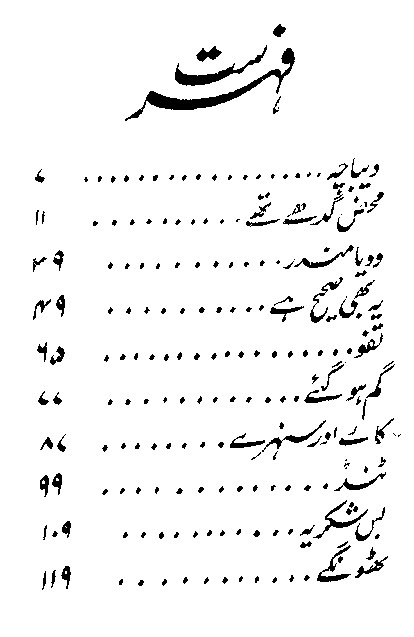 فہرست
دیباچہ .................. ۷
محض گدھے تھے ........... ۱۱
ودیا مندر ........... ۳۹
یہ بھی صحیح ہے ........... ۴۹
تفو ................ ۶۵
گم ہو گئے ............ ۷۷
کالے اور سنہرے ........ ۸۷
ٹنڈ .............. ۹۹
بس شکریہ ........... ۱۰۹
ٹھونگے ............ ۱۱۹